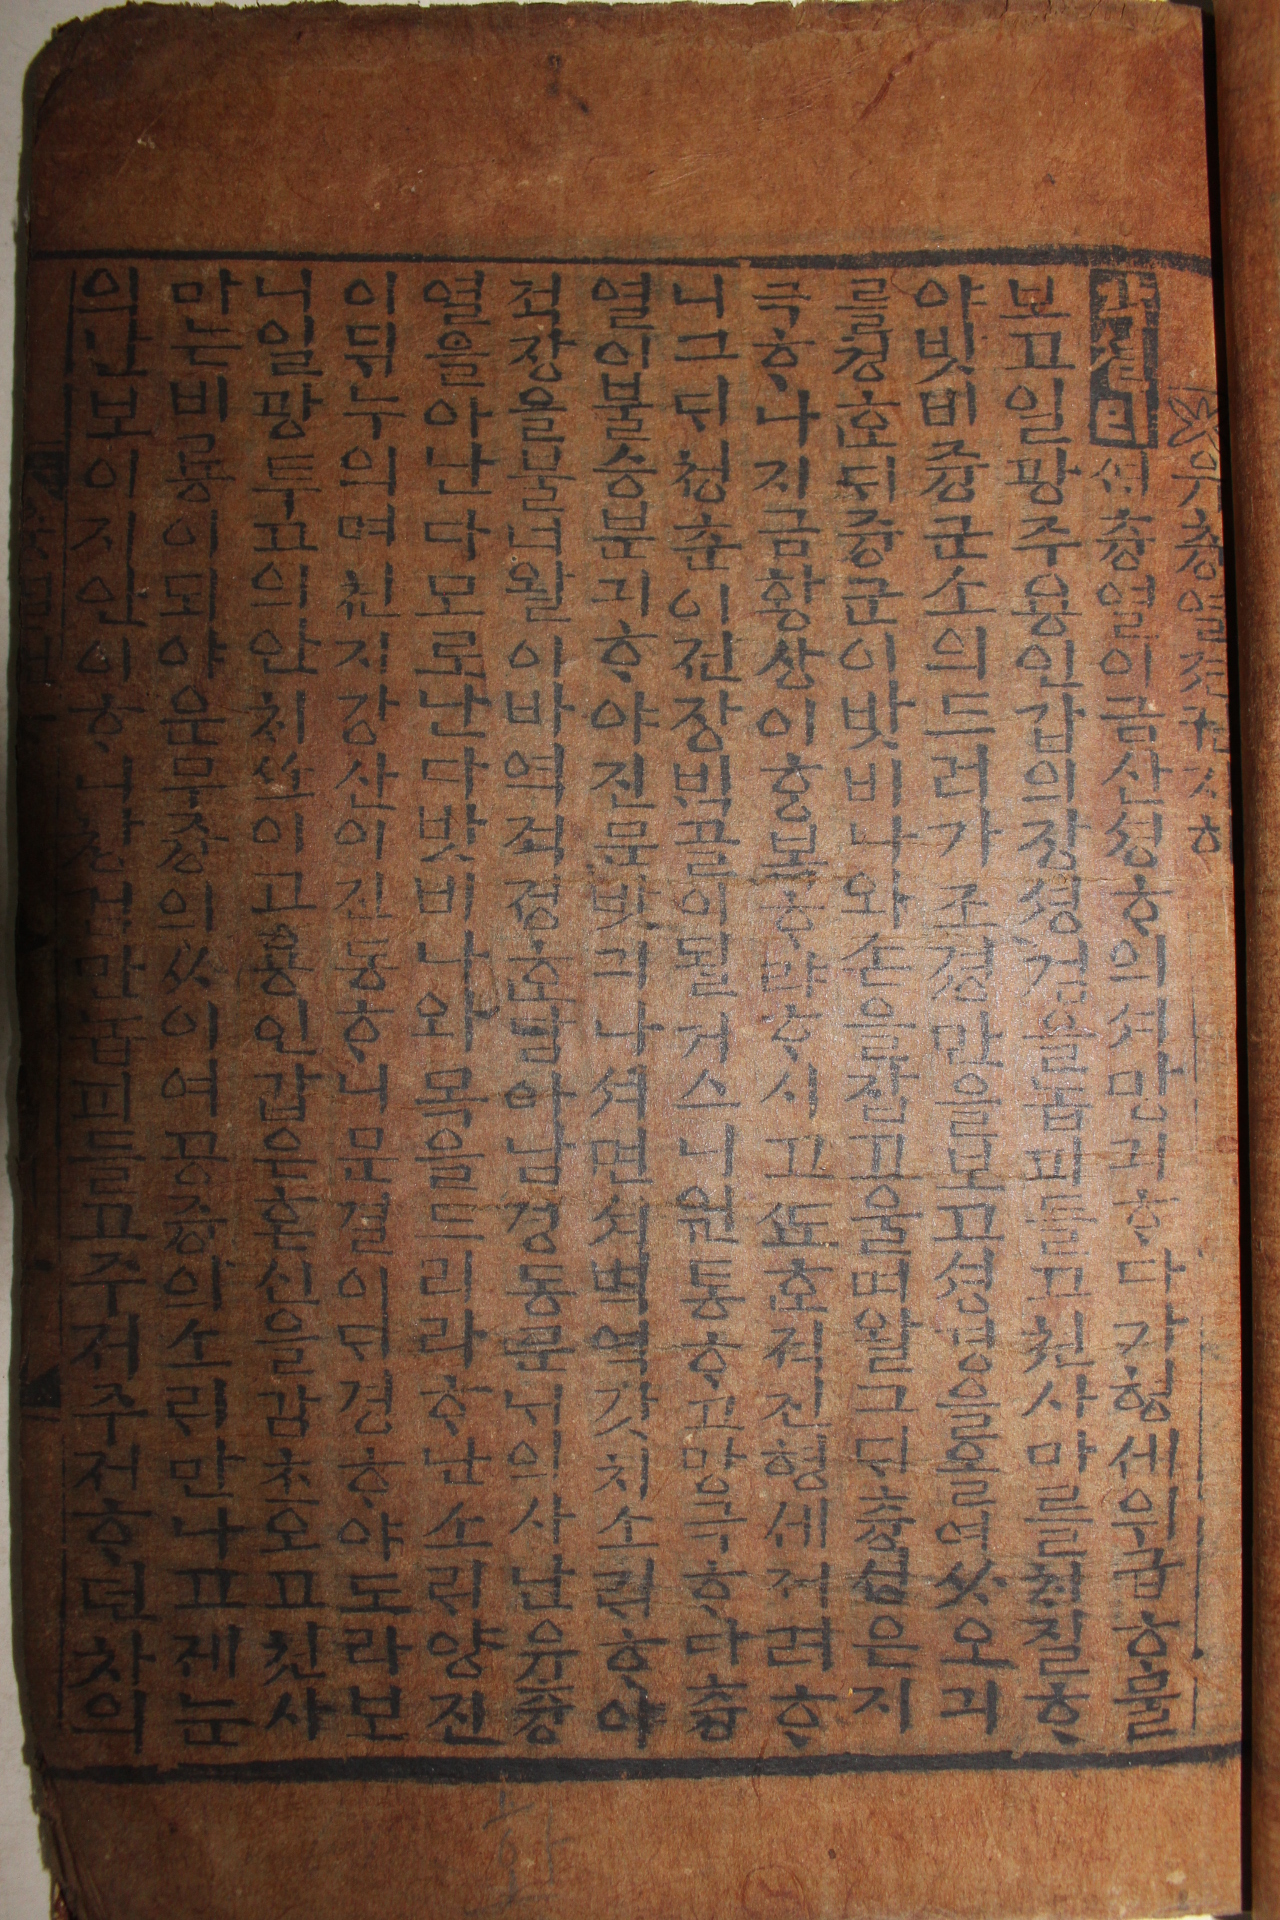 유츙열젼권지하
각셜 잇 ᄯᆡ 유츙열이 금산셩하의셔 망긔ᄒᆞ다가 형셰 위급ᄒᆞ물
보고 일광주 용인갑의 장셩검을 놉피 들고 쳔사마를 ᄎᆡ질ᄒᆞ
야 밧비 즁군소의 드러가 조졍만을 보고 셩명을 올여 ᄡᅡ오긔
를 쳥ᄒᆞᆫᄃᆡ 즁군이 밧비 나와 손을 잡고 울며 왈 그ᄃᆡ 츙셩은 지
극ᄒᆞ나 지금 황상이 ᄒᆞᆼ복ᄒᆞ랴 ᄒᆞ시고 ᄯᅩᄒᆞᆫ 젹진 형셰 져려ᄒᆞ
니 그ᄃᆡ 쳥춘이 젼장 ᄇᆡᆨ골이 될 거스니 원통ᄒᆞ고 망극ᄒᆞ다 츙
열이 불승분긔ᄒᆞ야 진문 밧긔 나셔면셔 벽역갓치 소ᄅᆡᄒᆞ야
젹장을 불너 왈 이바 역젹 졍ᄒᆞᆫ담아 남경 동문 ᄂᆡ의 사난 유츙
열을 아난다 모로난다 밧비 나와 목을 드리라 ᄒᆞ난 소ᄅᆡ 양진
이 뒤누의며 쳔지강산이 진동ᄒᆞ니 문걸이 ᄃᆡ경ᄒᆞ야 도라보
니 일광투고의 안ᄎᆡ ᄡᅩ이고 용인갑은 혼신을 감초오고 쳔사
만는 비룡이 되야 운무 즁의 ᄡᅡ이여 공즁의 소ᄅᆡ만 나고 졔 눈
의난 보이지 안이ᄒᆞ니 창검만 놉피 들고 주져주져ᄒᆞ던 차의